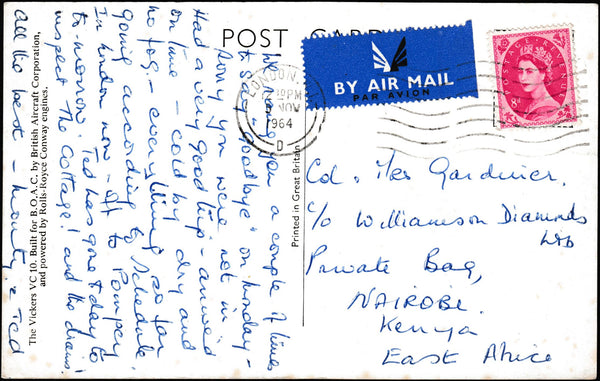 POST CARD
BY AIR MAIL
PAR AVION
LONDON
PM
NOV
1964
D
We rang you a couple of times
to say "Goodbye" on Monday –
Sorry you were not in
Had a very good trip – arrived
on time – cold by dry and
no fog. – everything so far
going according to Schedule.
In London now – off to Pompey
to-morrow. Ted has gone today to
inspect the Cottage! and the drains!
all the best – Monty & Ted
The Vickers VC 10. Built for B.O.A.C. by British Aircraft Corporation,
and powered by Rolls-Royce Conway engines.
Printed in Great Britain
Col. Gardiner.
c/o Williamson Diamonds
Ltd
Private Bag,
NAIROBI.
Kenya
East Africa